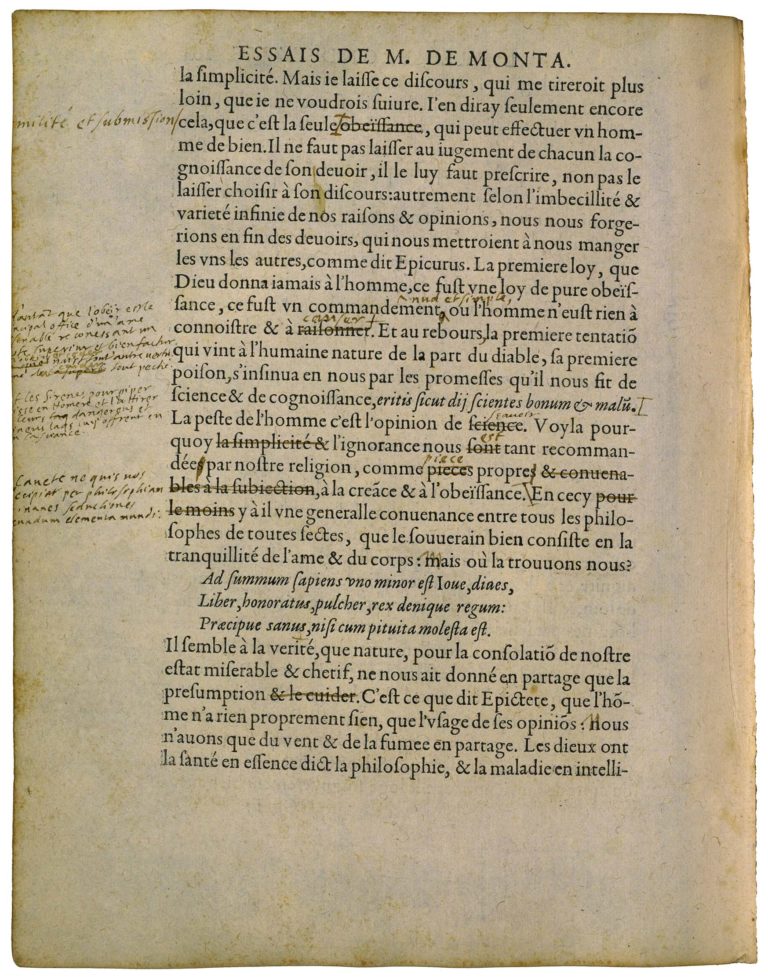 ESSAIS DE M. DE MONTA.
la ſimplicité. Mais ie laiſſe ce diſcours, qui me tireroit plus
loin, que ie ne voudrois ſuiure. I'en diray ſeulement encore
milité et submission
cela, que c'eſt la ſeule obeïſſance, qui peut effectuer vn hom-
me de bien. Il ne faut pas laiſſer au iugement de chacun la co-
gnoiſſance de ſon deuoir, il le luy faut preſcrire, non pas le
laiſſer choiſir à ſon diſcours: autrement ſelon l'imbecillité &
varieté infinie de nos raiſons & opinions, nous nous forge-
rions en fin des deuoirs, qui nous mettroient à nous manger
les vns les autres, comme dit Epicurus. La premiere loy, que
Dieu donna iamais à l'homme, ce fuſt vne loy de pure obeïſ-
nud et simple,
ſance, ce fuſt vn commandement, où l'homme n'euſt rien à
causer
connoiſtre & à raiſonner. Et au rebours, la premiere tentatiõ
qui vint à l'humaine nature de la part du diable, ſa premiere
poiſon, s'inſinua en nous par les promeſſes qu'il nous fit de
ſcience & de cognoiſſance, eritis ſicut dij ſcientes bonum & malũ.
sçavoir
La peſte de l'homme c'eſt l'opinion de ſcience. Voyla pour-
est
quoy la ſimplicité & l'ignorance nous ſont tant recomman-
piece
dées par noſtre religion, comme pieces propres & conuena-
bles à la ſubiection, à la creãce & à l'obeïſſance. En cecy pour
le moins y à il vne generalle conuenance entre tous les philo-
ſophes de toutes ſectes, que le ſouuerain bien conſiſte en la
tranquillité de l'ame & du corps: mais où la trouuons nous?
Cavete ne quis vos
decipiat per philosophiam
inanes seductiones
elementa mundi
Ad ſummum ſapiens vno minor eſt Ioue, diues,
Liber, honoratus, pulcher, rex denique regum:
Præcipue ſanus, niſi cum pituita moleſta eſt.
Il ſemble à la verité, que nature, pour la conſolatiõ de noſtre
eſtat miſerable & chetif, ne nous ait donné en partage que la
preſumption & le cuider. C'eſt ce que dit Epictete, que l'hõ-
me n'a rien proprement ſien, que l'vſage de ſes opiniõs: Nous
n'auons que du vent & de la fumee en partage. Les dieux ont
la ſanté en eſſence dict la philoſophie, & la maladie en intelli-